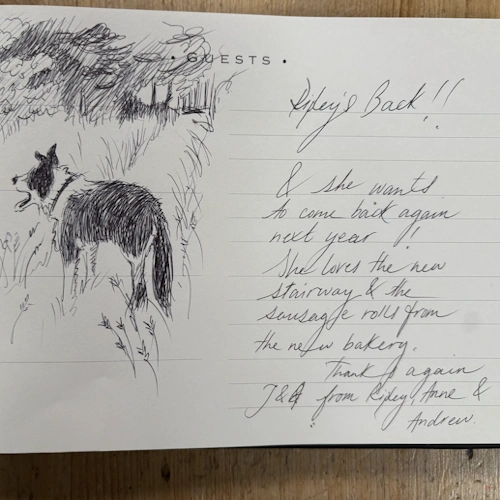 • GUESTS •
Ripley's Back!!
& she wants
to come back again
next year!!
She loves the new
stairway & the
sausage rolls from
the new bakery.
Thank s again
J&A from Ripley, Anne &
Andrew.